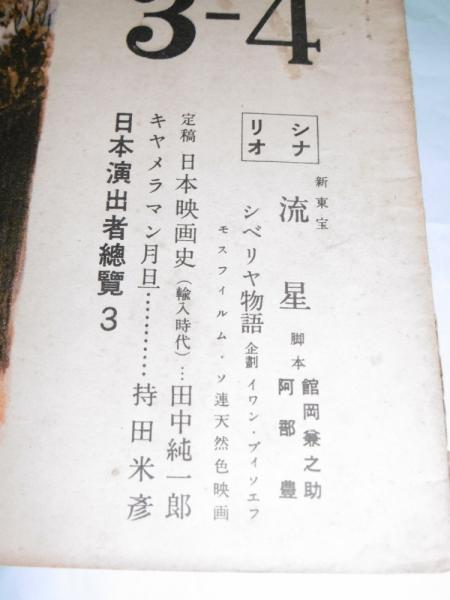 3-4
シナリオ
新東宝 流星 脚本 館岡兼之助
阿部豊
シベリヤ物語 企劃 イワン・プイソエフ
モスフィルム・ソ連天然色映画
定稿 日本映画史(輸入時代)…田中純一郎
キヤメラマン月旦…………持田米彥
日本演出者總覽 3